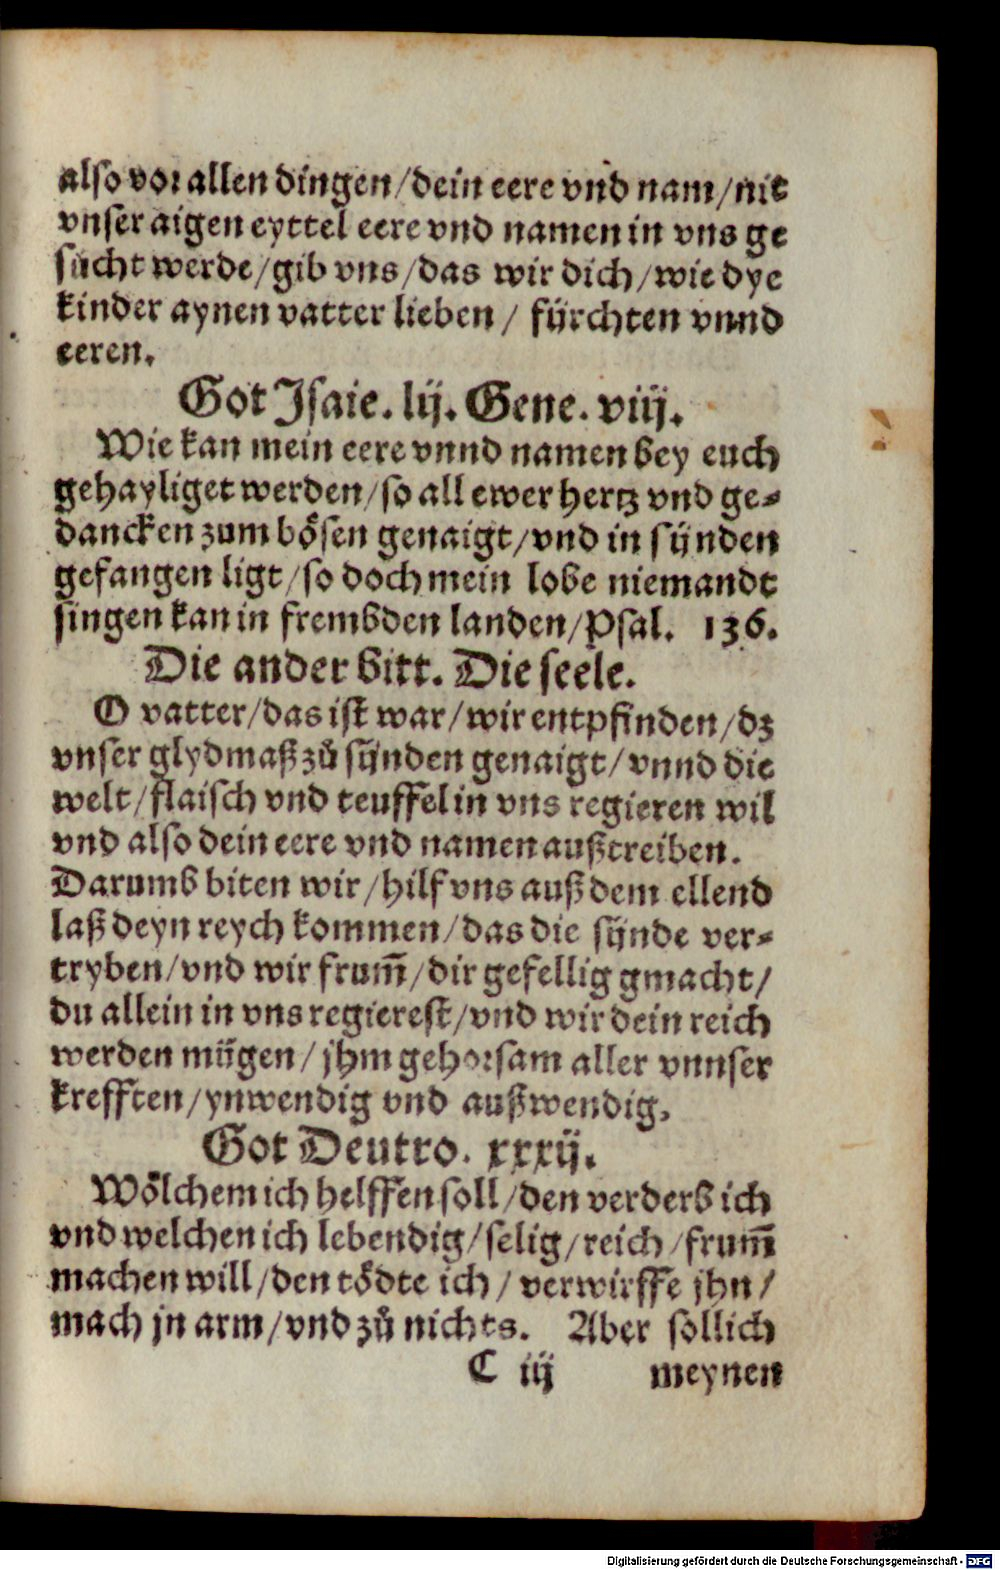 also vor allen dingen/dein eere vnd nam/nit
vnser aigen eyttel eere vnd namen in vns ge
sücht werde/gib vns/das wir dich/wie dye
kinder aynen vatter lieben/ fürchten vnnd
eeren.
Got Isaie. lij. Gene. viij.
Wie kan mein eere vnnd namen bey euch
gehayliget werden/so all ewer hertz vnd ge-
dancken zum bösen genaigt/vnd in sünden
gefangen ligt/so doch mein lobe niemandt
singen kan in frembden landen/Psal. 136.
Die ander bitt. Die seele.
O vatter/das ist war/wir entpfinden/dz
vnser glydmaß zů sünden genaigt/vnnd die
welt/flaisch vnd teuffel in vns regieren wil
vnd also dein eere vnd namen außtreiben.
Darumb biten wir/hilf vns auß dem ellend
laß deyn reych kommen/das die sünde ver-
tryben/vnd wir frum̃/dir gefellig gmacht/
du allein in vns regierest/vnd wir dein reich
werden mügen/jhm gehorsam aller vnnser
krefften/ynwendig vnd außwendig.
Got Deutro. xxxij.
Wölchem ich helffen soll/den verderb ich
vnd welchen ich lebendig/selig/reich/frum̃
machen will/den tödte ich/verwürffe jhn/
mach jn arm/vnd zů nichts. Aber sollich
C iij meynen
Digitalisierung gefördert durch die Deutsche Forschungsgemeinschaft - DFG